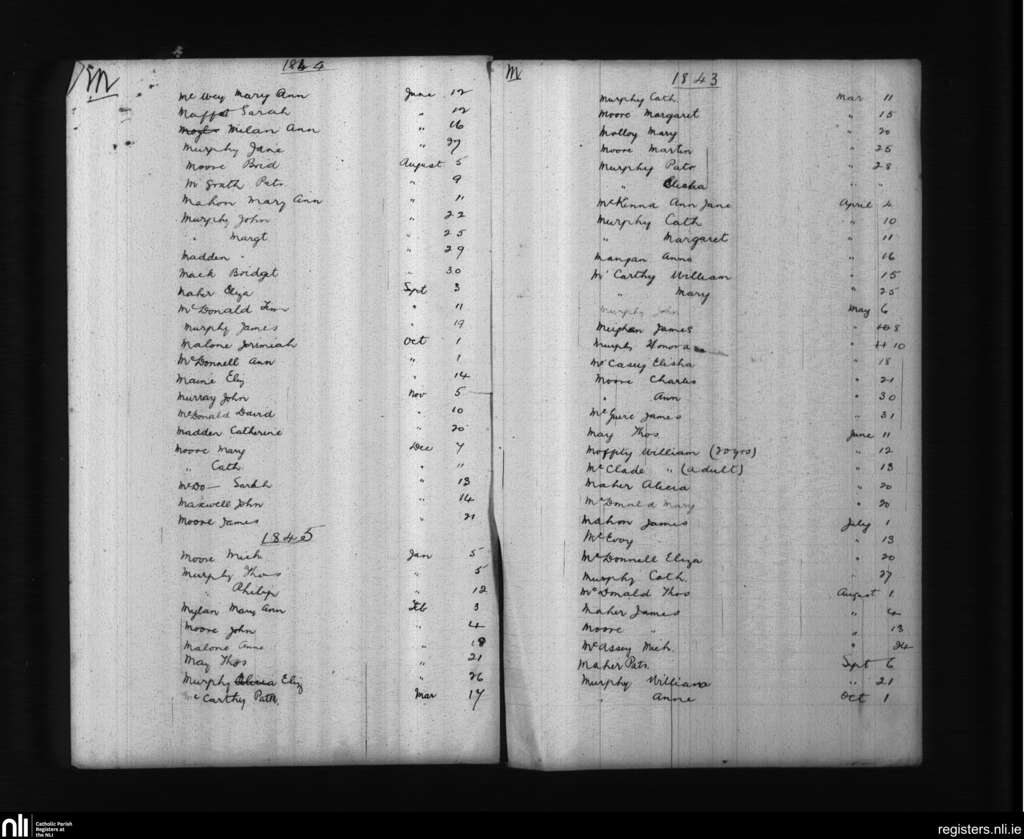 M
1844
McVey Mary Ann June 12
Moffat Sarah " 12
Milan Ann " 16
Murphy Jane " 27
Moore Brid August 5
McGrath Pat " 9
Mahon Mary Ann " 11
Murphy John " 22
" Margt " 25
Madden " " 29
Mack Bridget " 30
Maher Eliza Sept 3
McDonald " 11
Murphy James " 19
Malone Jerimiah Oct 1
McDonnell Ann " 1
Maine Eliz " 14
Murray John Nov 5
McDonald David " 10
Madden Catherine " 20
Moore Mary Dec 7
" Cath " 11
McDo— Sarah " 13
Maxwell John " 14
Moore James " 21
1845
Moore Mich Jan 5
Murphy Thos " 5
" Philip " 12
Mylan Mary Ann Feb 3
Moore John " 4
Malone Anne " 18
May Thos " 21
Murphy Alicia Eliz " 26
McCarthy Patk Mar 17
M
1843
Murphy Cath Mar 11
Moore Margaret " 15
Molloy Mary " 20
Moore Martin " 25
Murphy Patr " 28
" Elisha " "
McKinna Ann Jane April 4
Murphy Cath " 10
" Margaret " 11
Mangan Anna " 16
McCarthy William " 15
" Mary " 25
Murphy John May 6
Meighan James " 8
Murphy Honora " 10
McCasey Elisha " 18
Moore Charles " 21
" Ann " 30
McGuire James " 31
May Thos June 11
William (20 yrs) " 12
McClade " (adult) " 13
Maher Alicia " 20
McDonald Mary " 20
Mahon James July 1
McEvoy " 13
McDonnell Eliza " 20
Murphy Cath " 27
McDonald Thos August 1
Maher James " 4
Moore " " 13
McAssey Mich " 24
Maher Patr. Sept 6
Murphy William " 21
" Anne Oct 1
nli Catholic Parish Registers at the NLI
registers.nli.ie